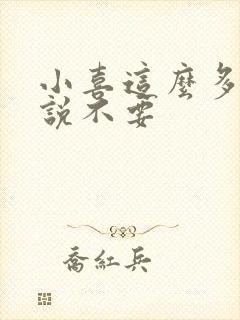 小喜這麼多
說不要
喬紅兵